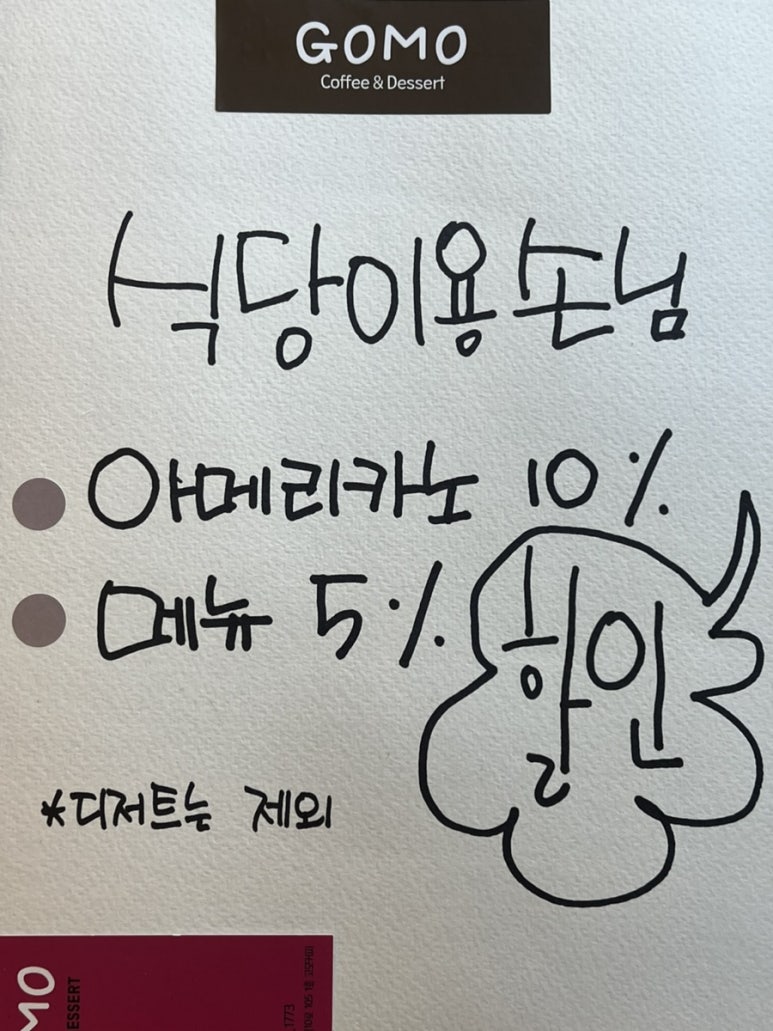 GOMO
Coffee & Dessert
식당이용손님
아메리카노 10%
메뉴 5%
할인
*디저트는 제외
MO
ESSERT
1773